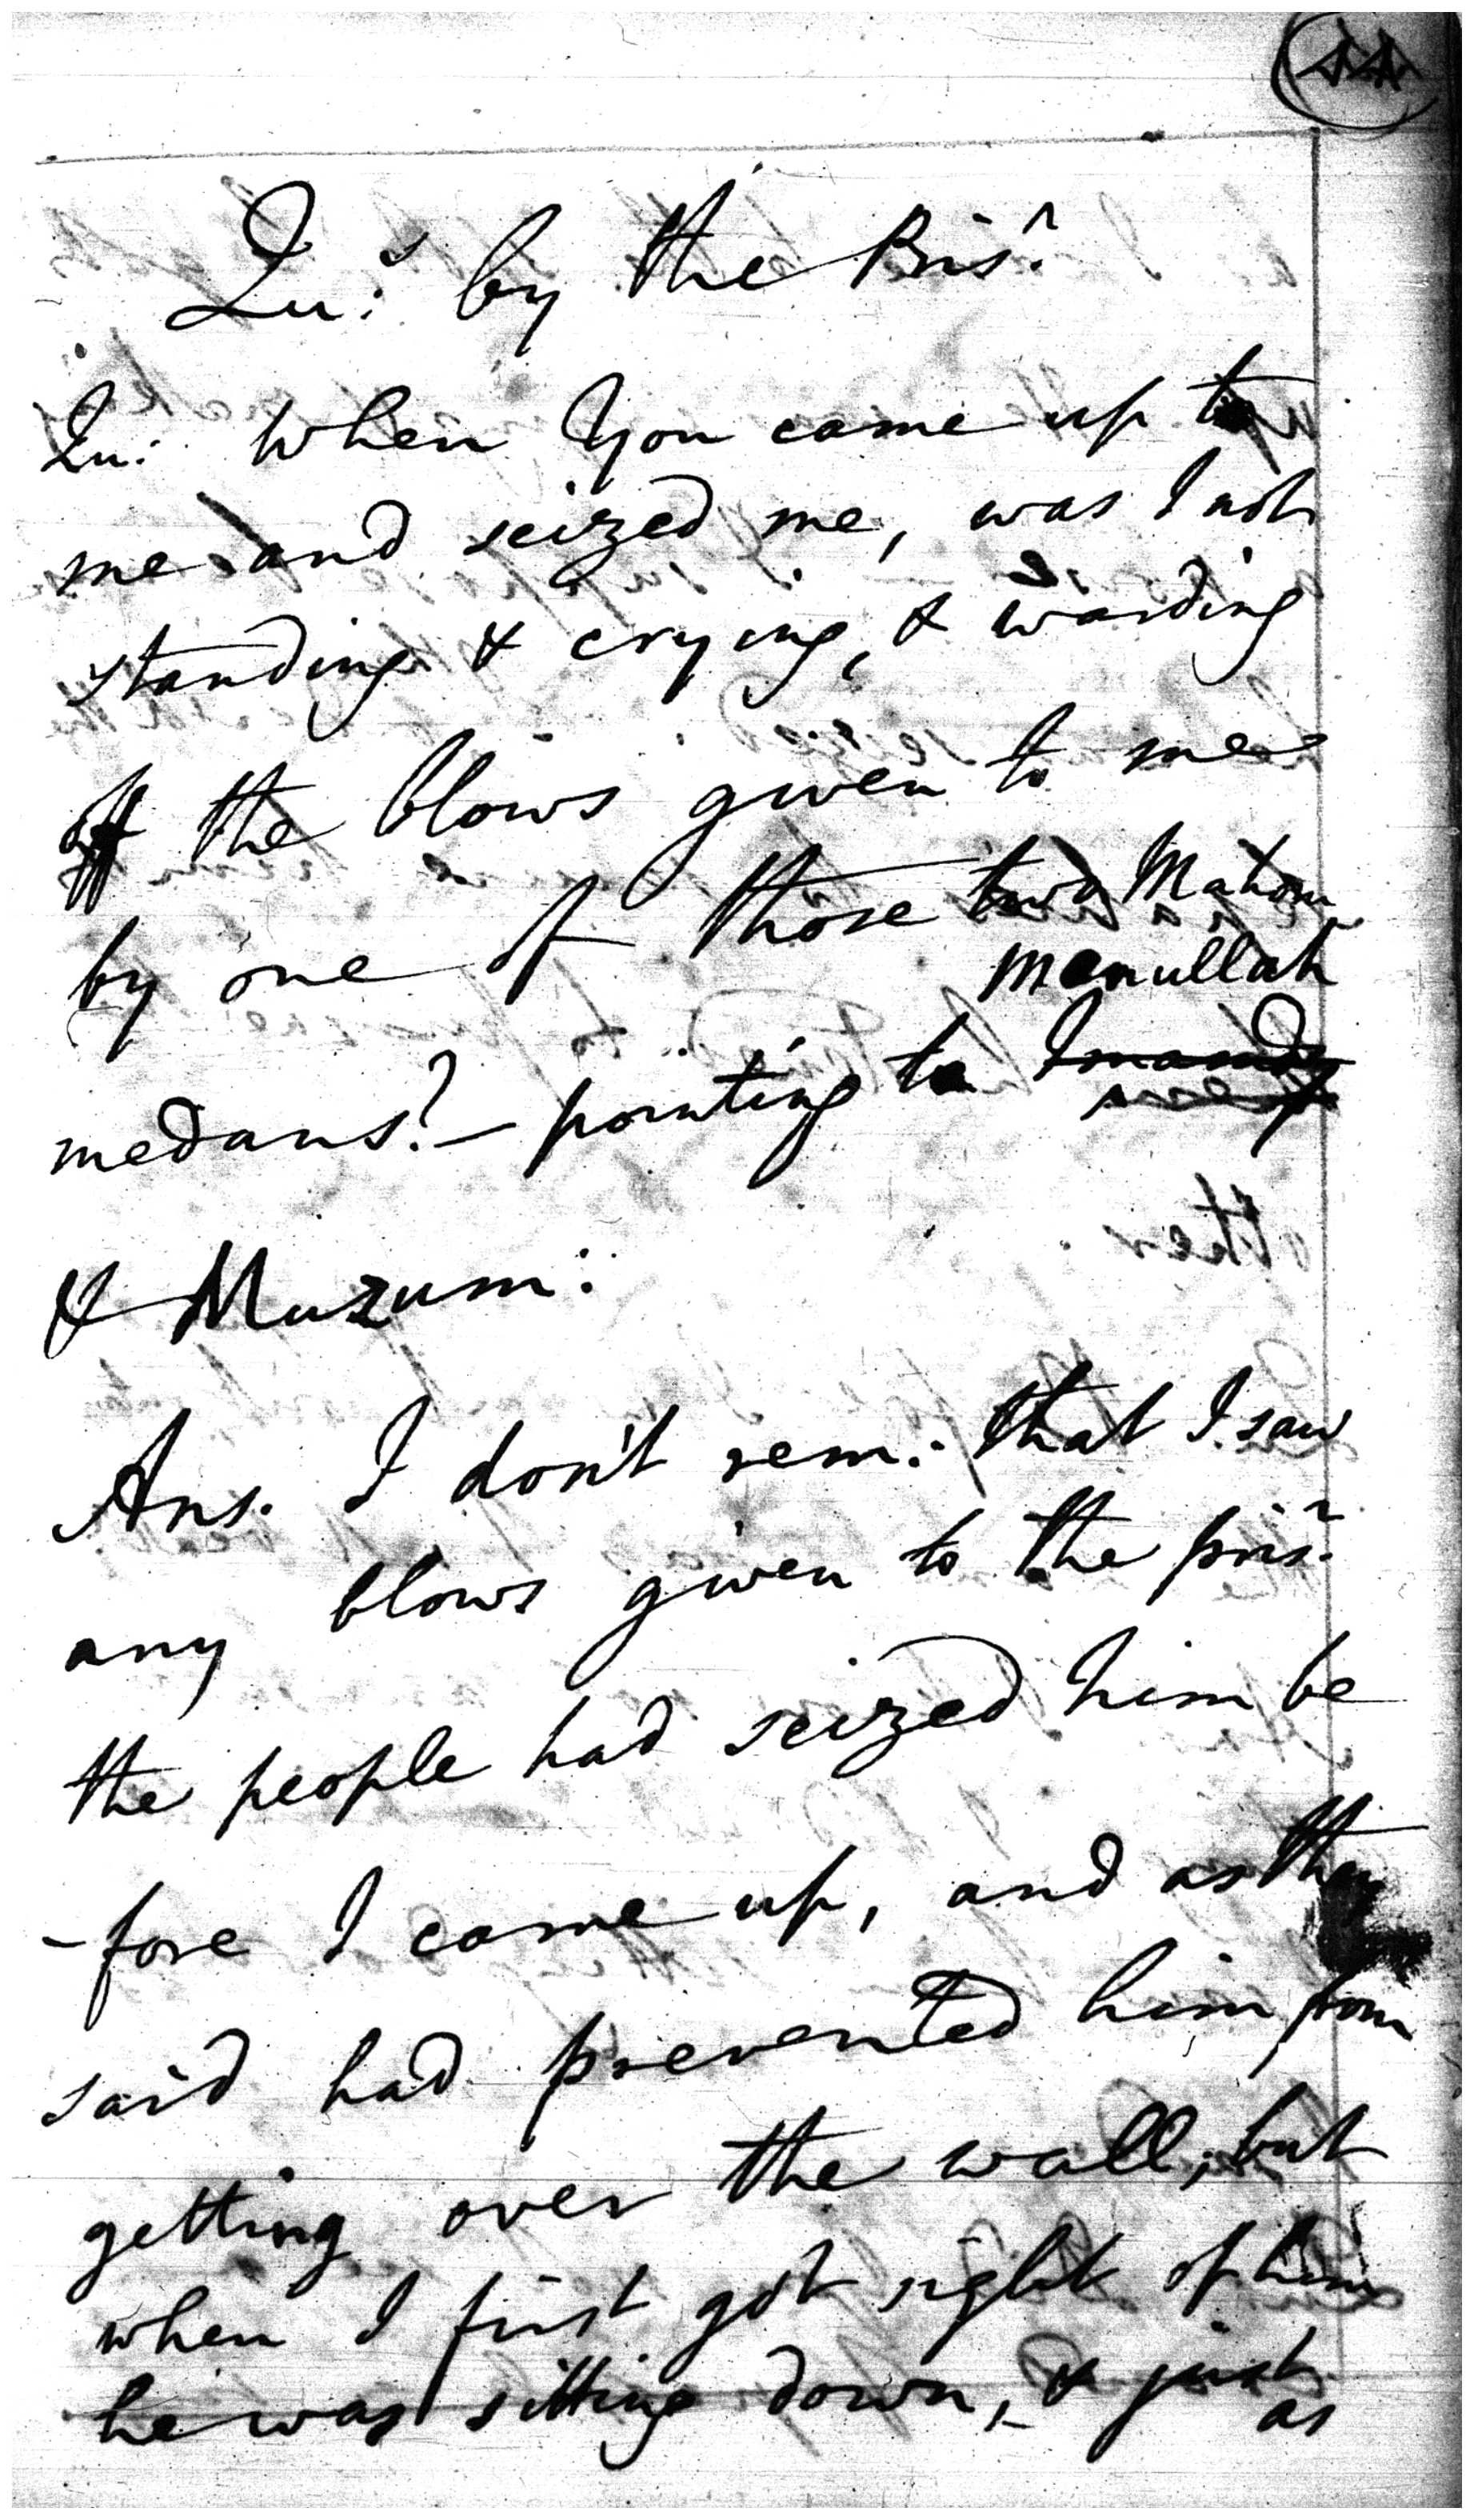 Qu:s by the Prisr.
Qu: When You came up to
me and seized me, was I not
standing & crying, & warding
off the blows given to me
by one of those two Mahom
manullah
medans? — pointing to
& Muzum:
Ans. I don't rem: that I saw
any blows given to the prisr.
the people had seized him be
-fore I came up, and as they
said had prevented him from
getting over the wall; but
when I first got sight of him
he was sitting down, & just
as